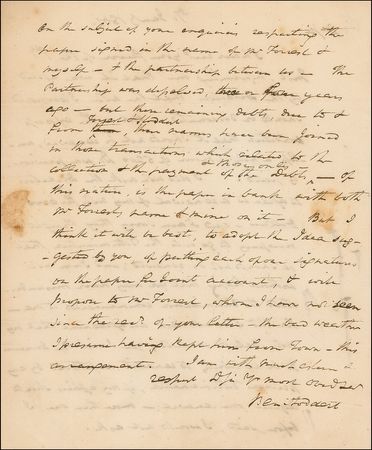 On the subject of your enquiries respecting the
paper signed in the name of Mr Forrest &
myself – & the partnership between us – The
Partnership was dissolved, three or four years
ago – but there remaining debts due to &
Forrest & Stoddert
from them, their names have been joined
in those transactions which related to the
& they only
collection & the payment of the Debts, – Of
this nature, is the paper in bank with both
Mr Forrests name & mine on it – But I
think it will be best, to adopt the Idea sug-
gested by you, of putting each of our signatures
on the paper for account, & will
propose to Mr Forrest, whom I have not seen
since the rect. of your letter – the bad weather
I presume having kept him from Town – this
arrangement. I am with much esteem &
respect Dr Sir Yr most Obed Ser
Ben Stoddert